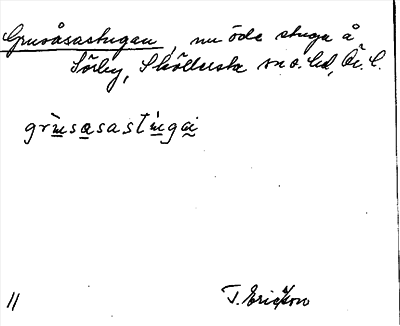 Gruvåsastugan, nu öde stuga å
Sörby, Sköllersta sn o. hd, Ör. l.
grùsasastùgai
11
T. Ericson